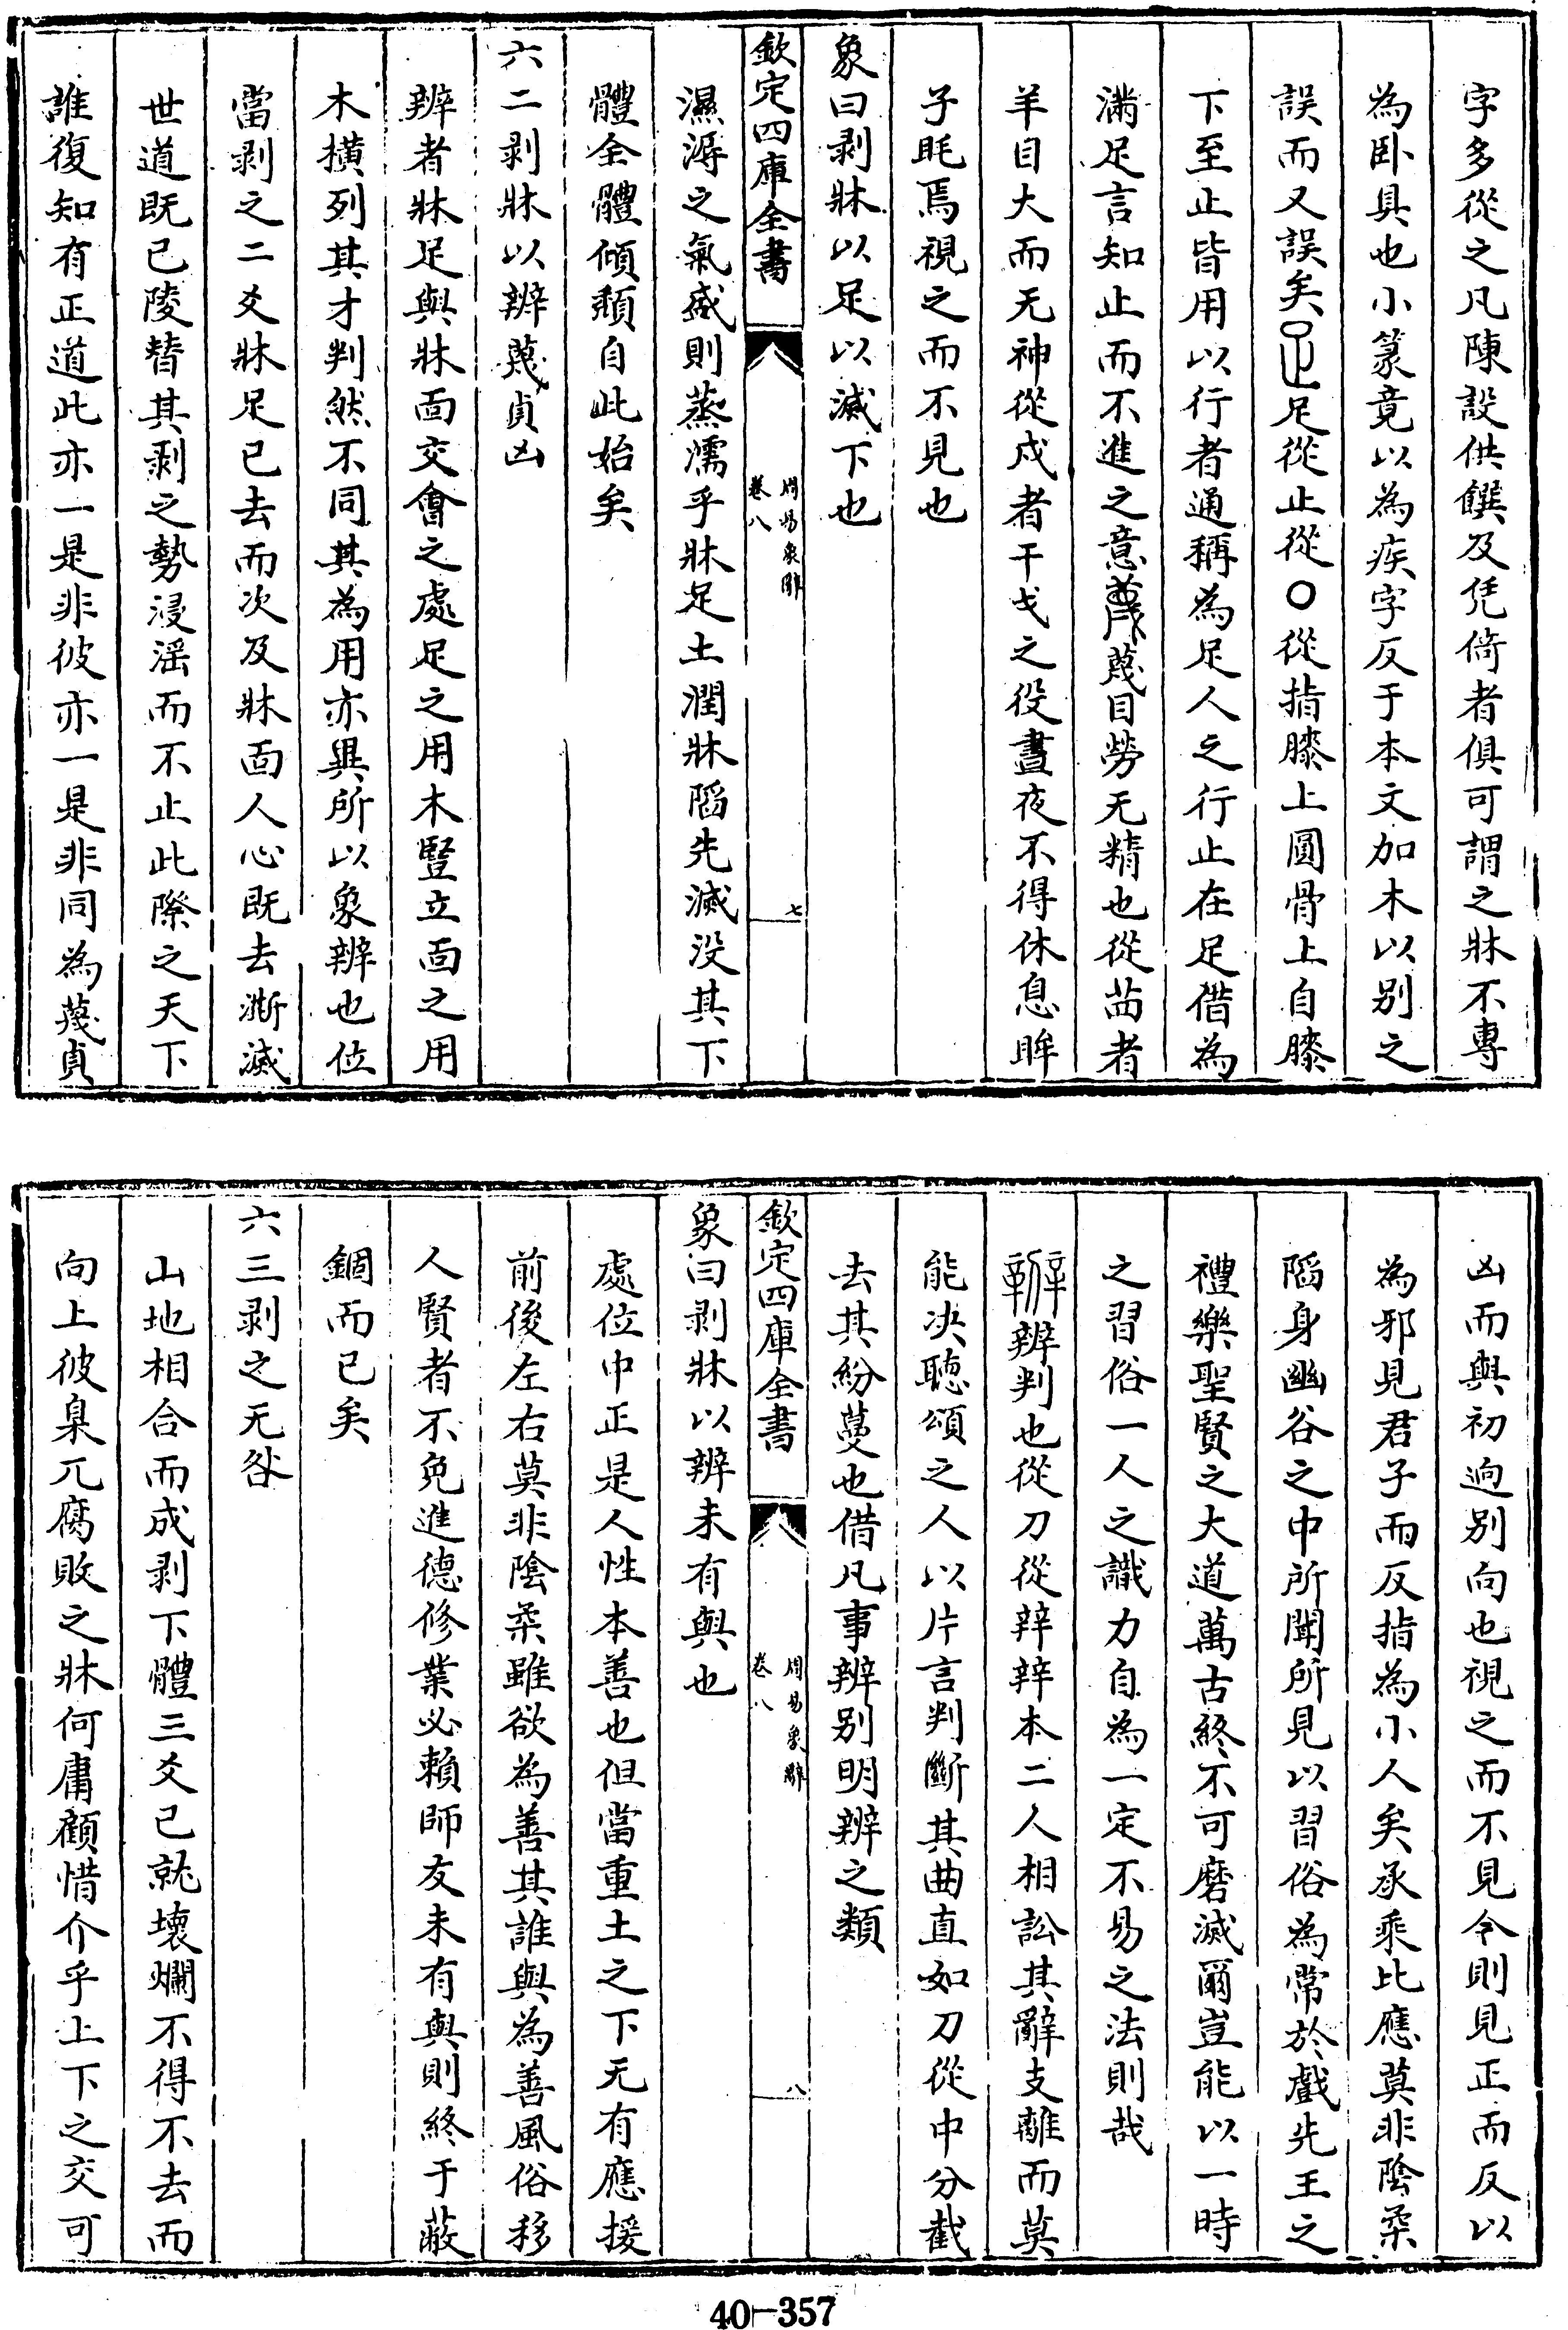 字多從之凡陳設供饌及凭倚者俱可謂之牀不專
為卧具也小篆竟以為疾字反于本文加木以别之
誤而又誤矣足從止從〇從指膝上圓骨上自膝
下至止皆用以行者通稱為足人之行止在足借為
滿足言知止而不進之意蔑目勞无精也從苗者
羊目大而无神從戍者干戈之役晝夜不得休息眸
子眊焉視之而不見也
象曰剥牀以足以滅下也
欽定四庫全書
周易象辭
卷八
七
濕溽之氣盛則蒸濡乎牀足土潤牀陷先滅没其下
體全體傾頽自此始矣
六二剥牀以辨蔑貞凶
辨者牀足與牀面交會之處足之用木豎立面之用
木横列其才判然不同其為用亦異所以象辨也位
當剥之二爻牀足已去而次及牀面人心既去漸滅
世道既已陵替其剥之勢浸滛而不止此際之天下
誰復知有正道此亦一是非彼亦一是非同為蔑貞
凶而與初逈别向也視之而不見今則見正而反以
為邪見君子而反指為小人矣承乘比應莫非陰柔
陷身幽谷之中所聞所見以習俗為常於戲先王之
禮樂聖賢之大道萬古終不可磨滅爾豈能以一時
之習俗一人之識力自為一定不易之法則哉
辨判也從刀從辡辡本二人相訟其辭支離而莫
能决聽頌之人以片言判斷其曲直如刀從中分截
去其紛蔓也借凡事辨别明辨之類
欽定四庫全書
周易象辭
卷八
八
象曰剥牀以辨未有與也
處位中正是人性本善也但當重土之下无有應援
前後左右莫非陰柔雖欲為善其誰與為善風俗移
人賢者不免進德修業必賴師友未有與則終于蔽
錮而已矣
六三剥之无咎
山地相合而成剥下體三爻已就壞爛不得不去而
向上彼臬兀腐敗之牀何庸顧惜介乎上下之交可
40-357